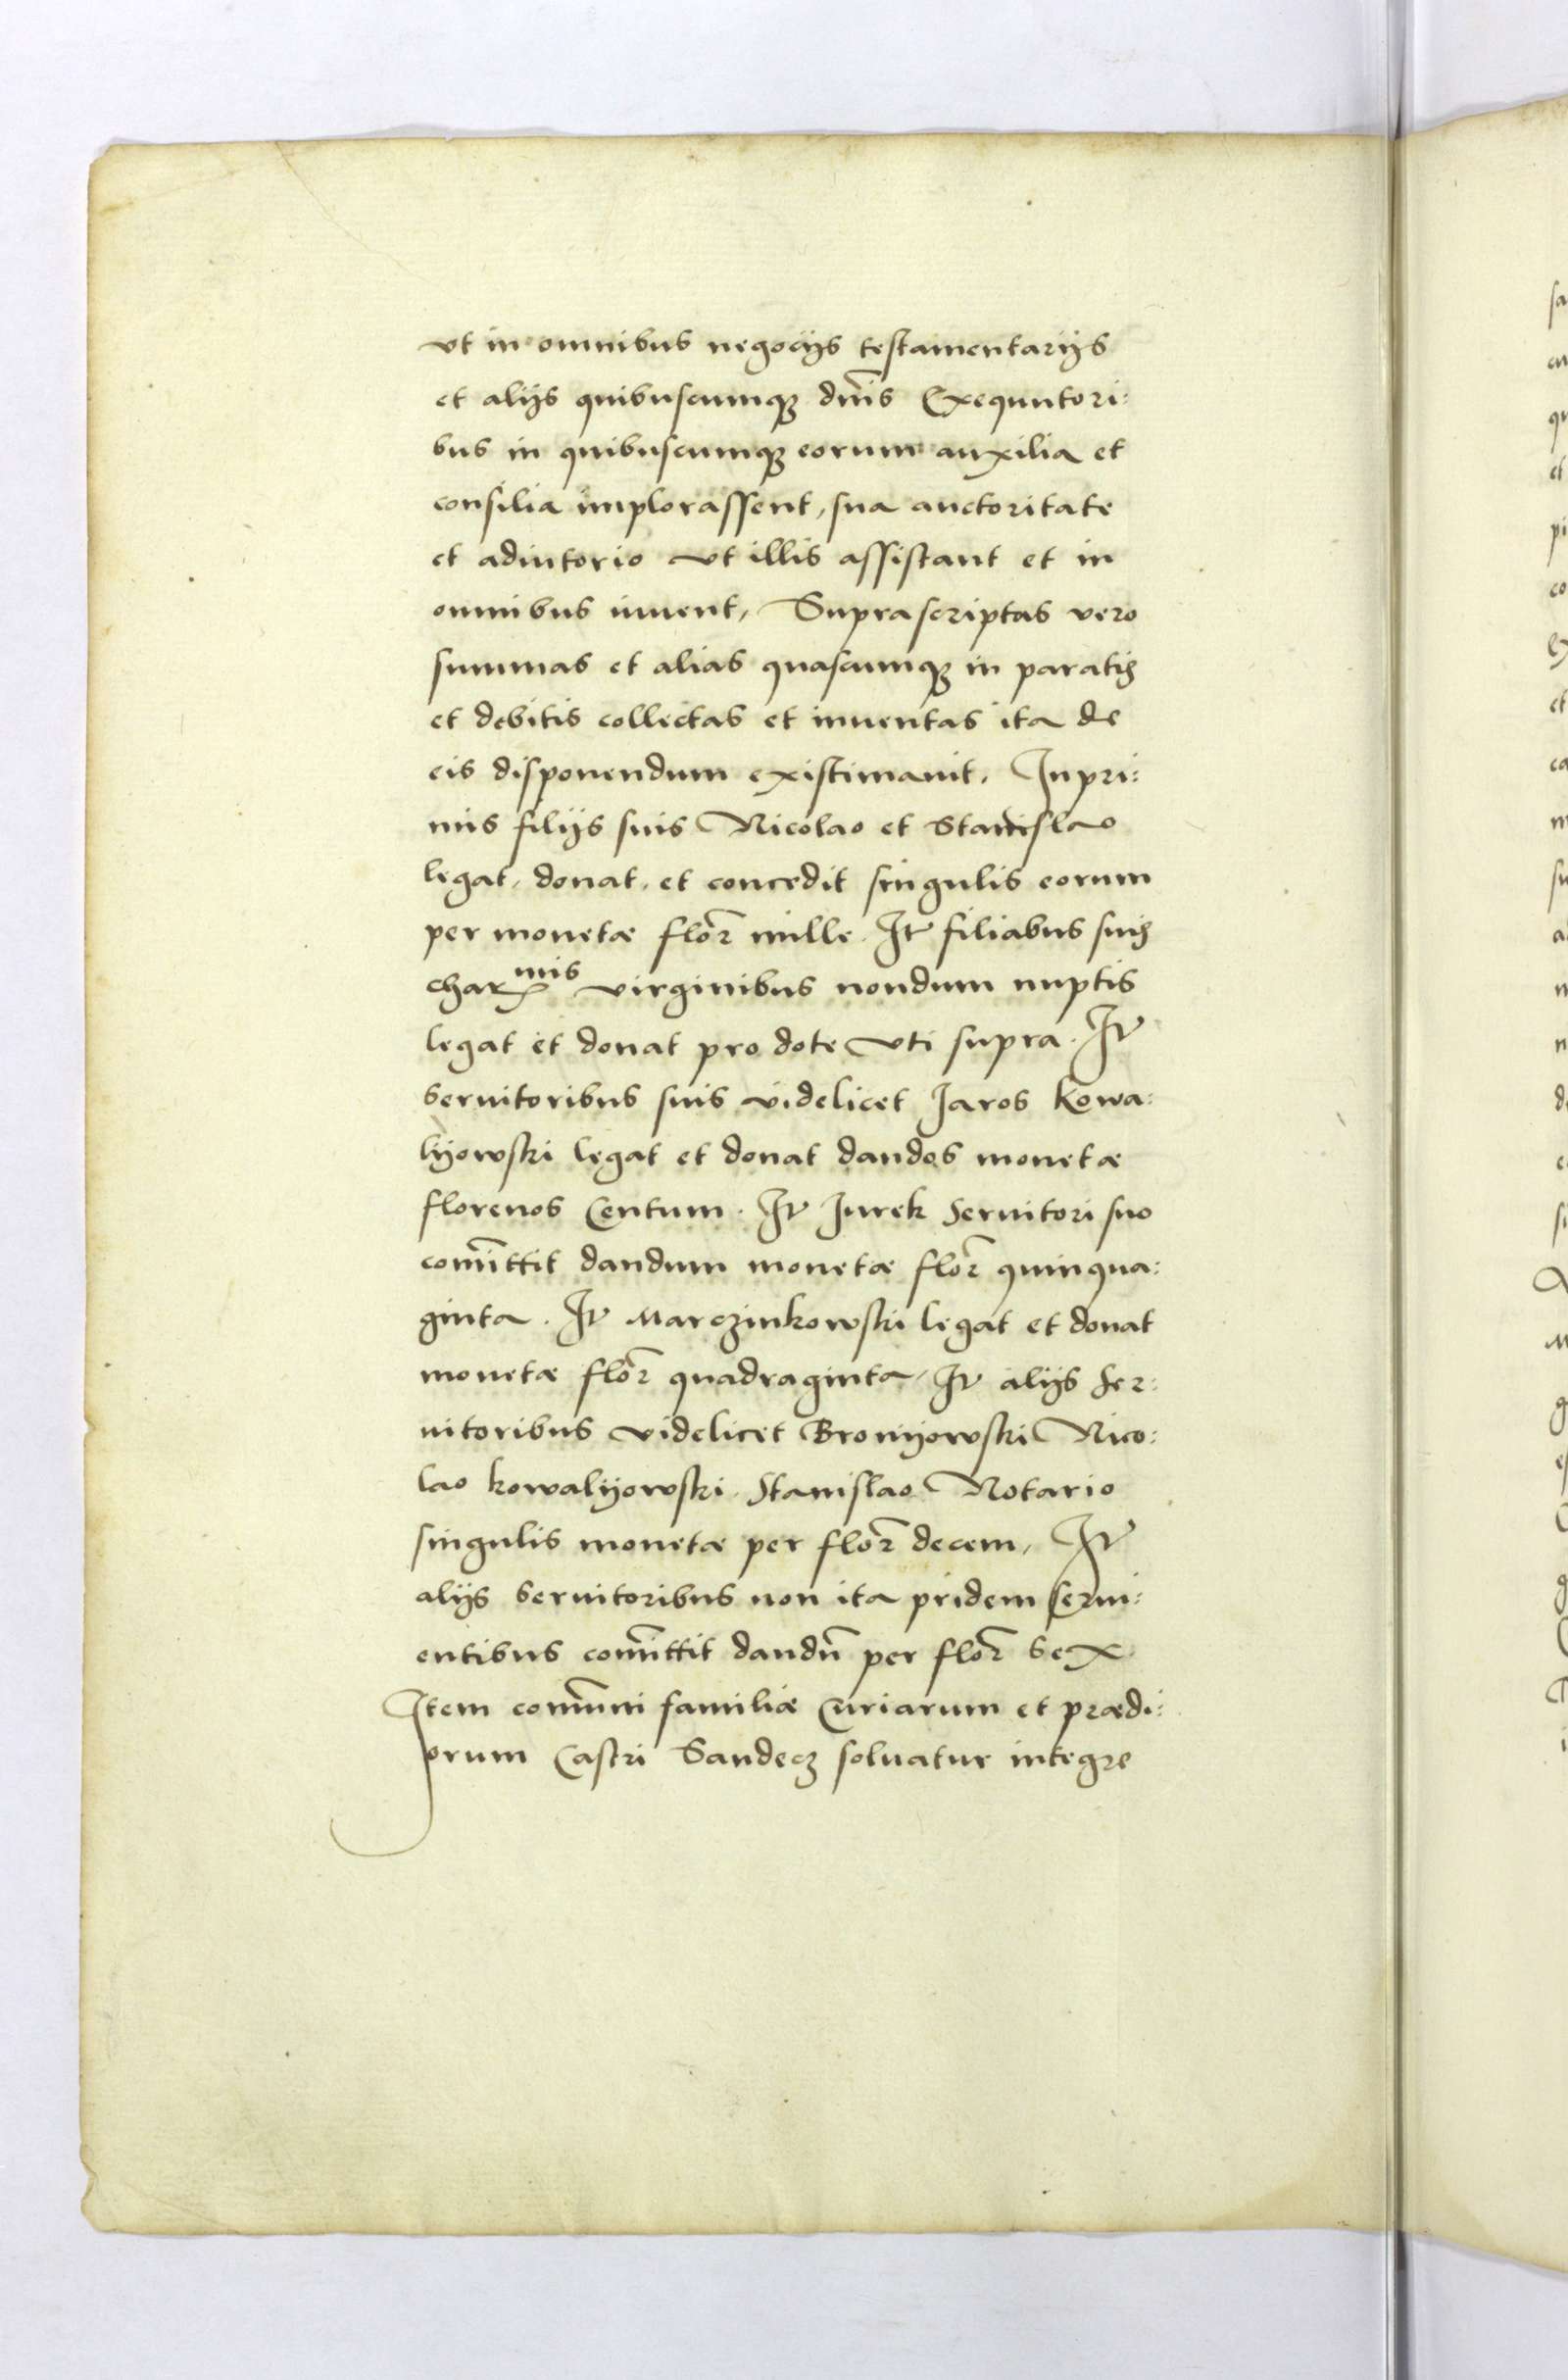 vt in omnibus negocijs testamentarijs
et alijs quibuscumqꝫ dn̄is Exequutori:
bus in quibuscumqꝫ eorum auxilia et
consilia implorassent, sua auctoritate
et adiutorio vt illis assistant et in
omnibus iuuent, Suprascriptas vero
summas et alias quascumqꝫ in paratis
et debitis collectas et inuentas ita de
eis disponendum existimauit. Inpri:
mis filijs suis Nicolao et Stanislao
legat, donat, et concedit singulis eorum
per monetæ flor̄ mille. It filiabus suis
charmis virginibus nondum nuptis
legat et donat pro dote vti supra. It
seruitoribus suis videlicet Jaros Kowa:
lijowski legat et donat dandos monetæ
florenos Centum. It Jurek seruitori suo
com̄ittit dandum monetæ flor̄ quinqua:
ginta. It Marczinkowski legat et donat
monetæ flor̄ quadraginta, It alijs ser:
uitoribus videlicet Bronijowski Nico:
lao kowalijowski. Stanislao Notario
singulis monetæ per flor̄ decem, It
alijs seruitoribus non ita pridem serui:
entibus com̄ittit dandū per flor̄ sex.
Item com̄uni familiæ Curiarum et prædi:
orum Castri Sandecz soluatur integre